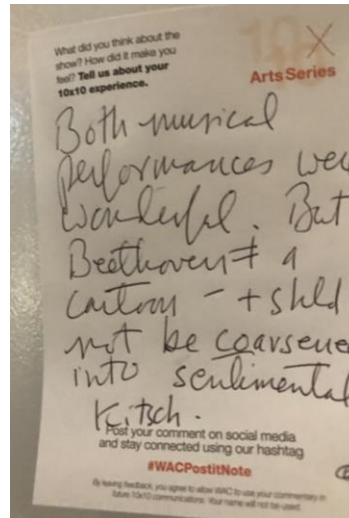 What did you think about the
show? How did it make you
feel? Tell us about your
10x10 experience.
10X
Arts Series
Both musical
performances wer
wonderful. But
Beethoven ≠ a
cartoon - + shld
not be coarsene
into sentimental
Kitsch.
Post your comment on social media
and stay connected using our hashtag
#WACPostitNote
By leaving feedback, you agree to allow WAC to use your commentary in
future 10x10 communications. Your name will not be used.